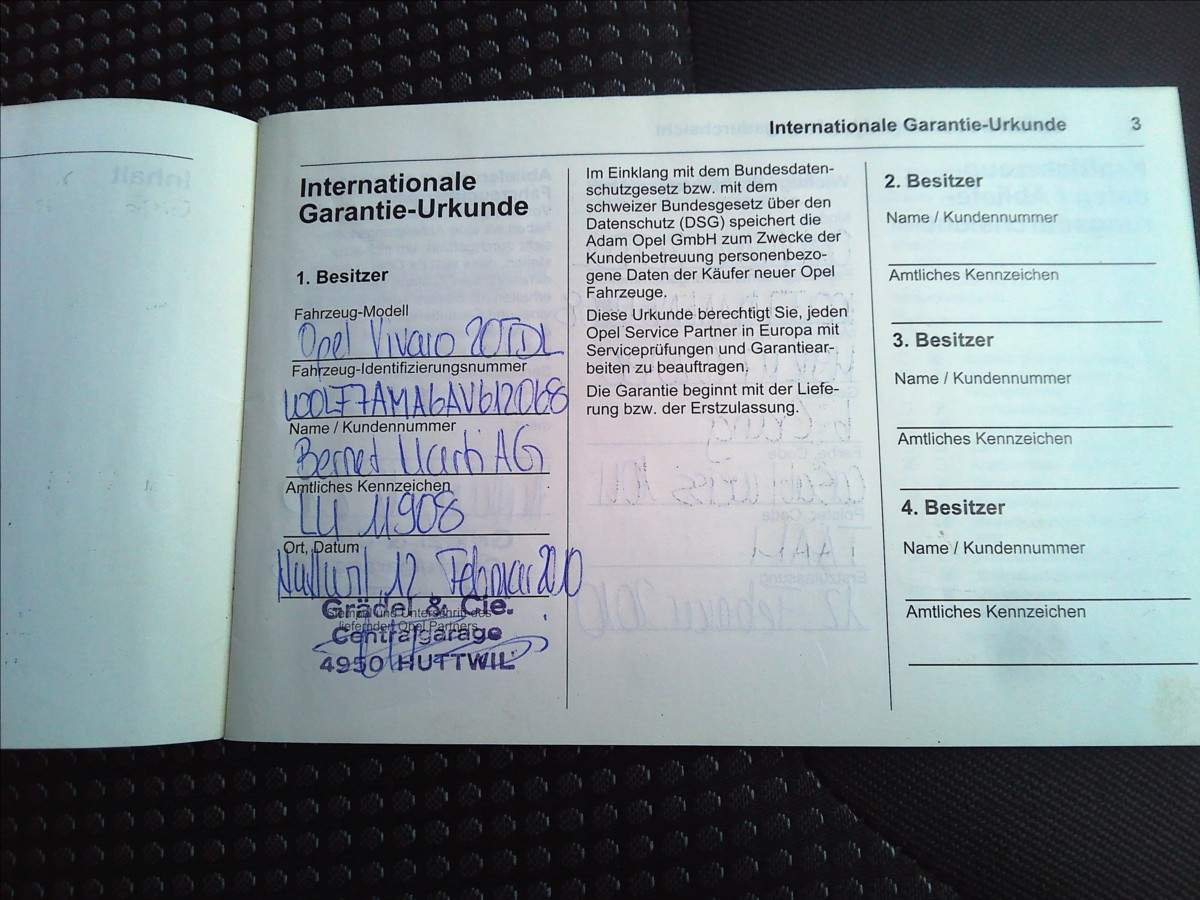 Internationale Garantie-Urkunde 3
Internationale
Garantie-Urkunde
1. Besitzer
Fahrzeug-Modell
Opel Vivaro 20TDL
Fahrzeug-Identifizierungsnummer
W0LF7AMA6AV612068
Name / Kundennummer
Bernet Marti AG
Amtliches Kennzeichen
LU 11908
Ort, Datum
Huttwil, 12. Februar 2010
Stempel und Unterschrift des
liefernden Opel Partners
Grädel & Cie.
Centralgarage
4950 HUTTWIL
Im Einklang mit dem Bundesdaten-
schutzgesetz bzw. mit dem
schweizer Bundesgesetz über den
Datenschutz (DSG) speichert die
Adam Opel GmbH zum Zwecke der
Kundenbetreuung personenbezo-
gene Daten der Käufer neuer Opel
Fahrzeuge.
Diese Urkunde berechtigt Sie, jeden
Opel Service Partner in Europa mit
Serviceprüfungen und Garantiear-
beiten zu beauftragen.
Die Garantie beginnt mit der Liefe-
rung bzw. der Erstzulassung.
2. Besitzer
Name / Kundennummer
Amtliches Kennzeichen
3. Besitzer
Name / Kundennummer
Amtliches Kennzeichen
4. Besitzer
Name / Kundennummer
Amtliches Kennzeichen